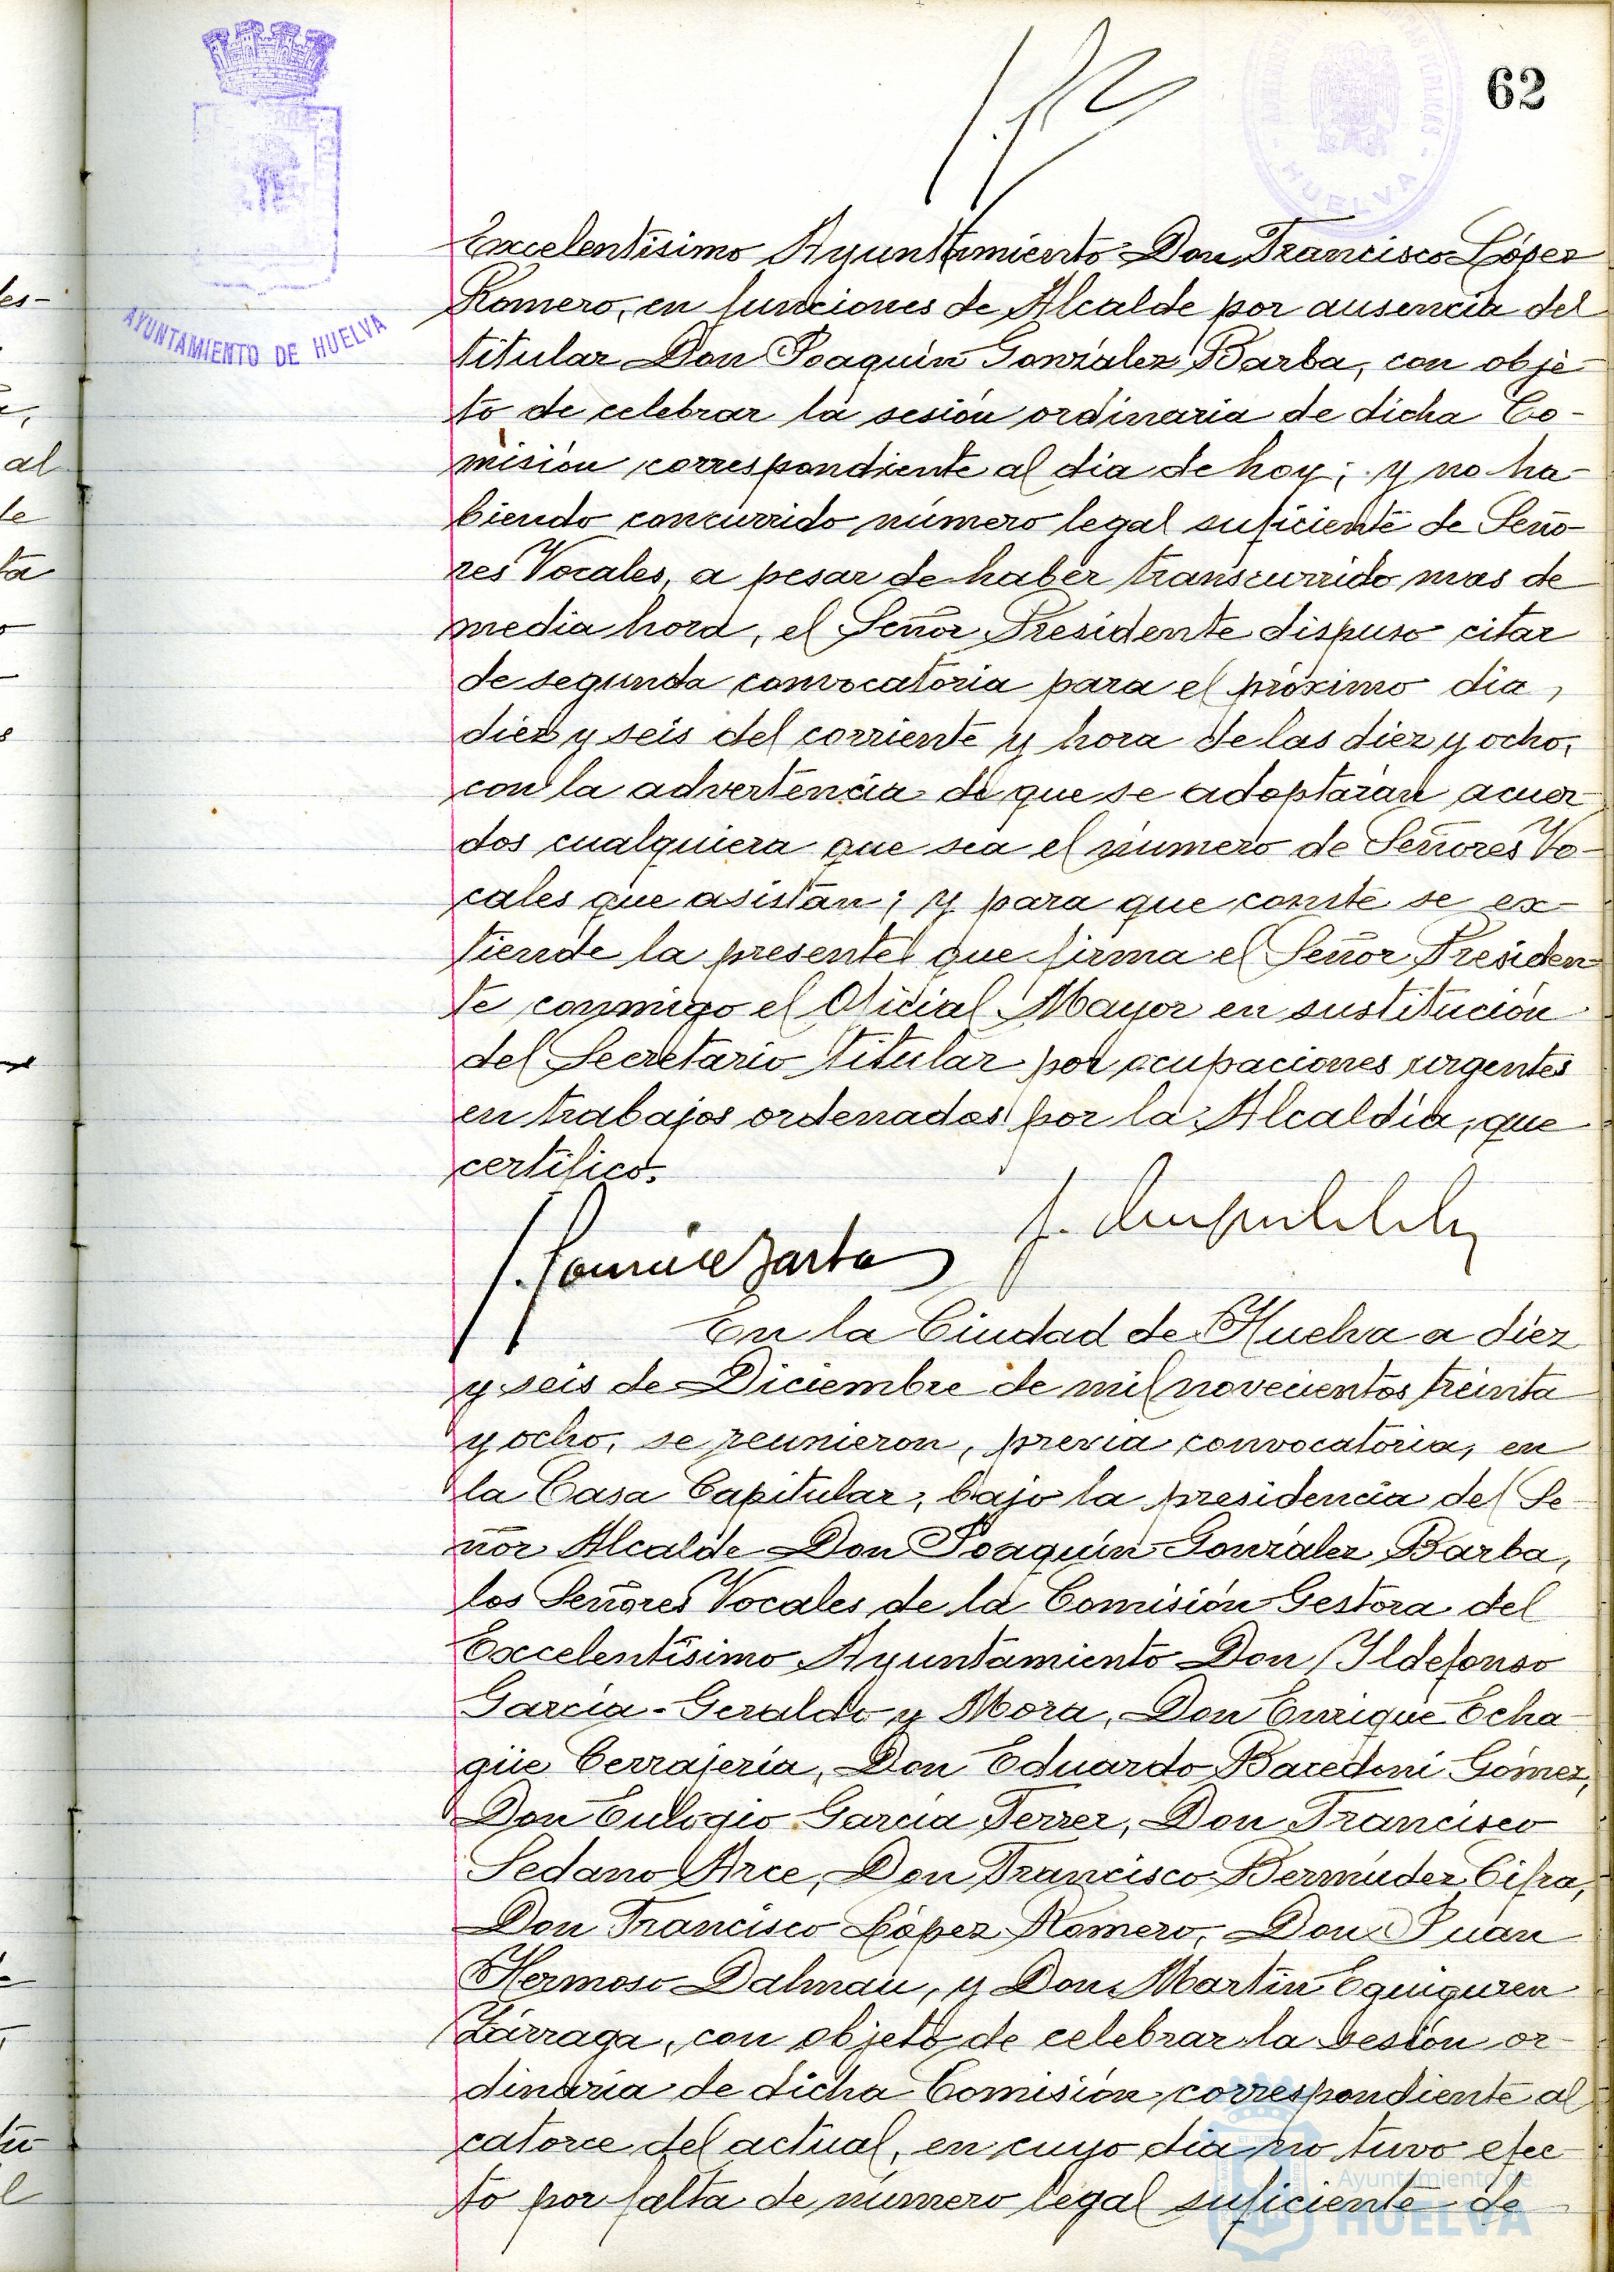 62
AYUNTAMIENTO DE HUELVA
HUELVA
Excelentísimo Ayuntamiento Don Francisco López
Romero, en funciones de Alcalde por ausencia del
titular Don Joaquín González Barba, con obje-
to de celebrar la sesión ordinaria de dicha Co-
misión correspondiente al día de hoy; y no ha-
biendo concurrido número legal suficiente de Seño-
res Vocales, a pesar de haber transcurrido mas de
media hora, el Señor Presidente dispuso citar
de segunda convocatoria para el próximo dia,
diez y seis del corriente y hora de las diez y ocho,
con la advertencia de que se adoptarán acuer-
dos cualquiera que sea el número de Señores Vo-
cales que asistan; y para que conste se ex-
tiende la presente que firma el Señor Presiden-
te conmigo el Oficial Mayor en sustitución
del Secretario titular por ocupaciones urgentes
en trabajos ordenados por la Alcaldía, que
certifico.
J. González Barba
En la Ciudad de Huelva a diez
y seis de Diciembre de mil novecientos treinta
y ocho, se reunieron, previa convocatoria, en
la Casa Capitular, bajo la presidencia del Se-
ñor Alcalde Don Joaquín González Barba,
los Señores Vocales de la Comisión Gestora del
Excelentísimo Ayuntamiento Don Ildefonso
García-Geraldo y Mora, Don Enrique Echa-
güe Cerrajería, Don Eduardo Bacedoni Gómez,
Don Eulogio García Ferrer, Don Francisco
Sedano Arce, Don Francisco Bermúdez Cifra,
Don Francisco López Romero, Don Juan
Hermoso Dalmau, y Don Martín Eguiguren
Zárraga, con objeto de celebrar la sesión or-
dinaria de dicha Comisión correspondiente al
catorce del actual, en cuyo día no tuvo efec-
to por falta de número legal suficiente de
Ayuntamiento de
HUELVA